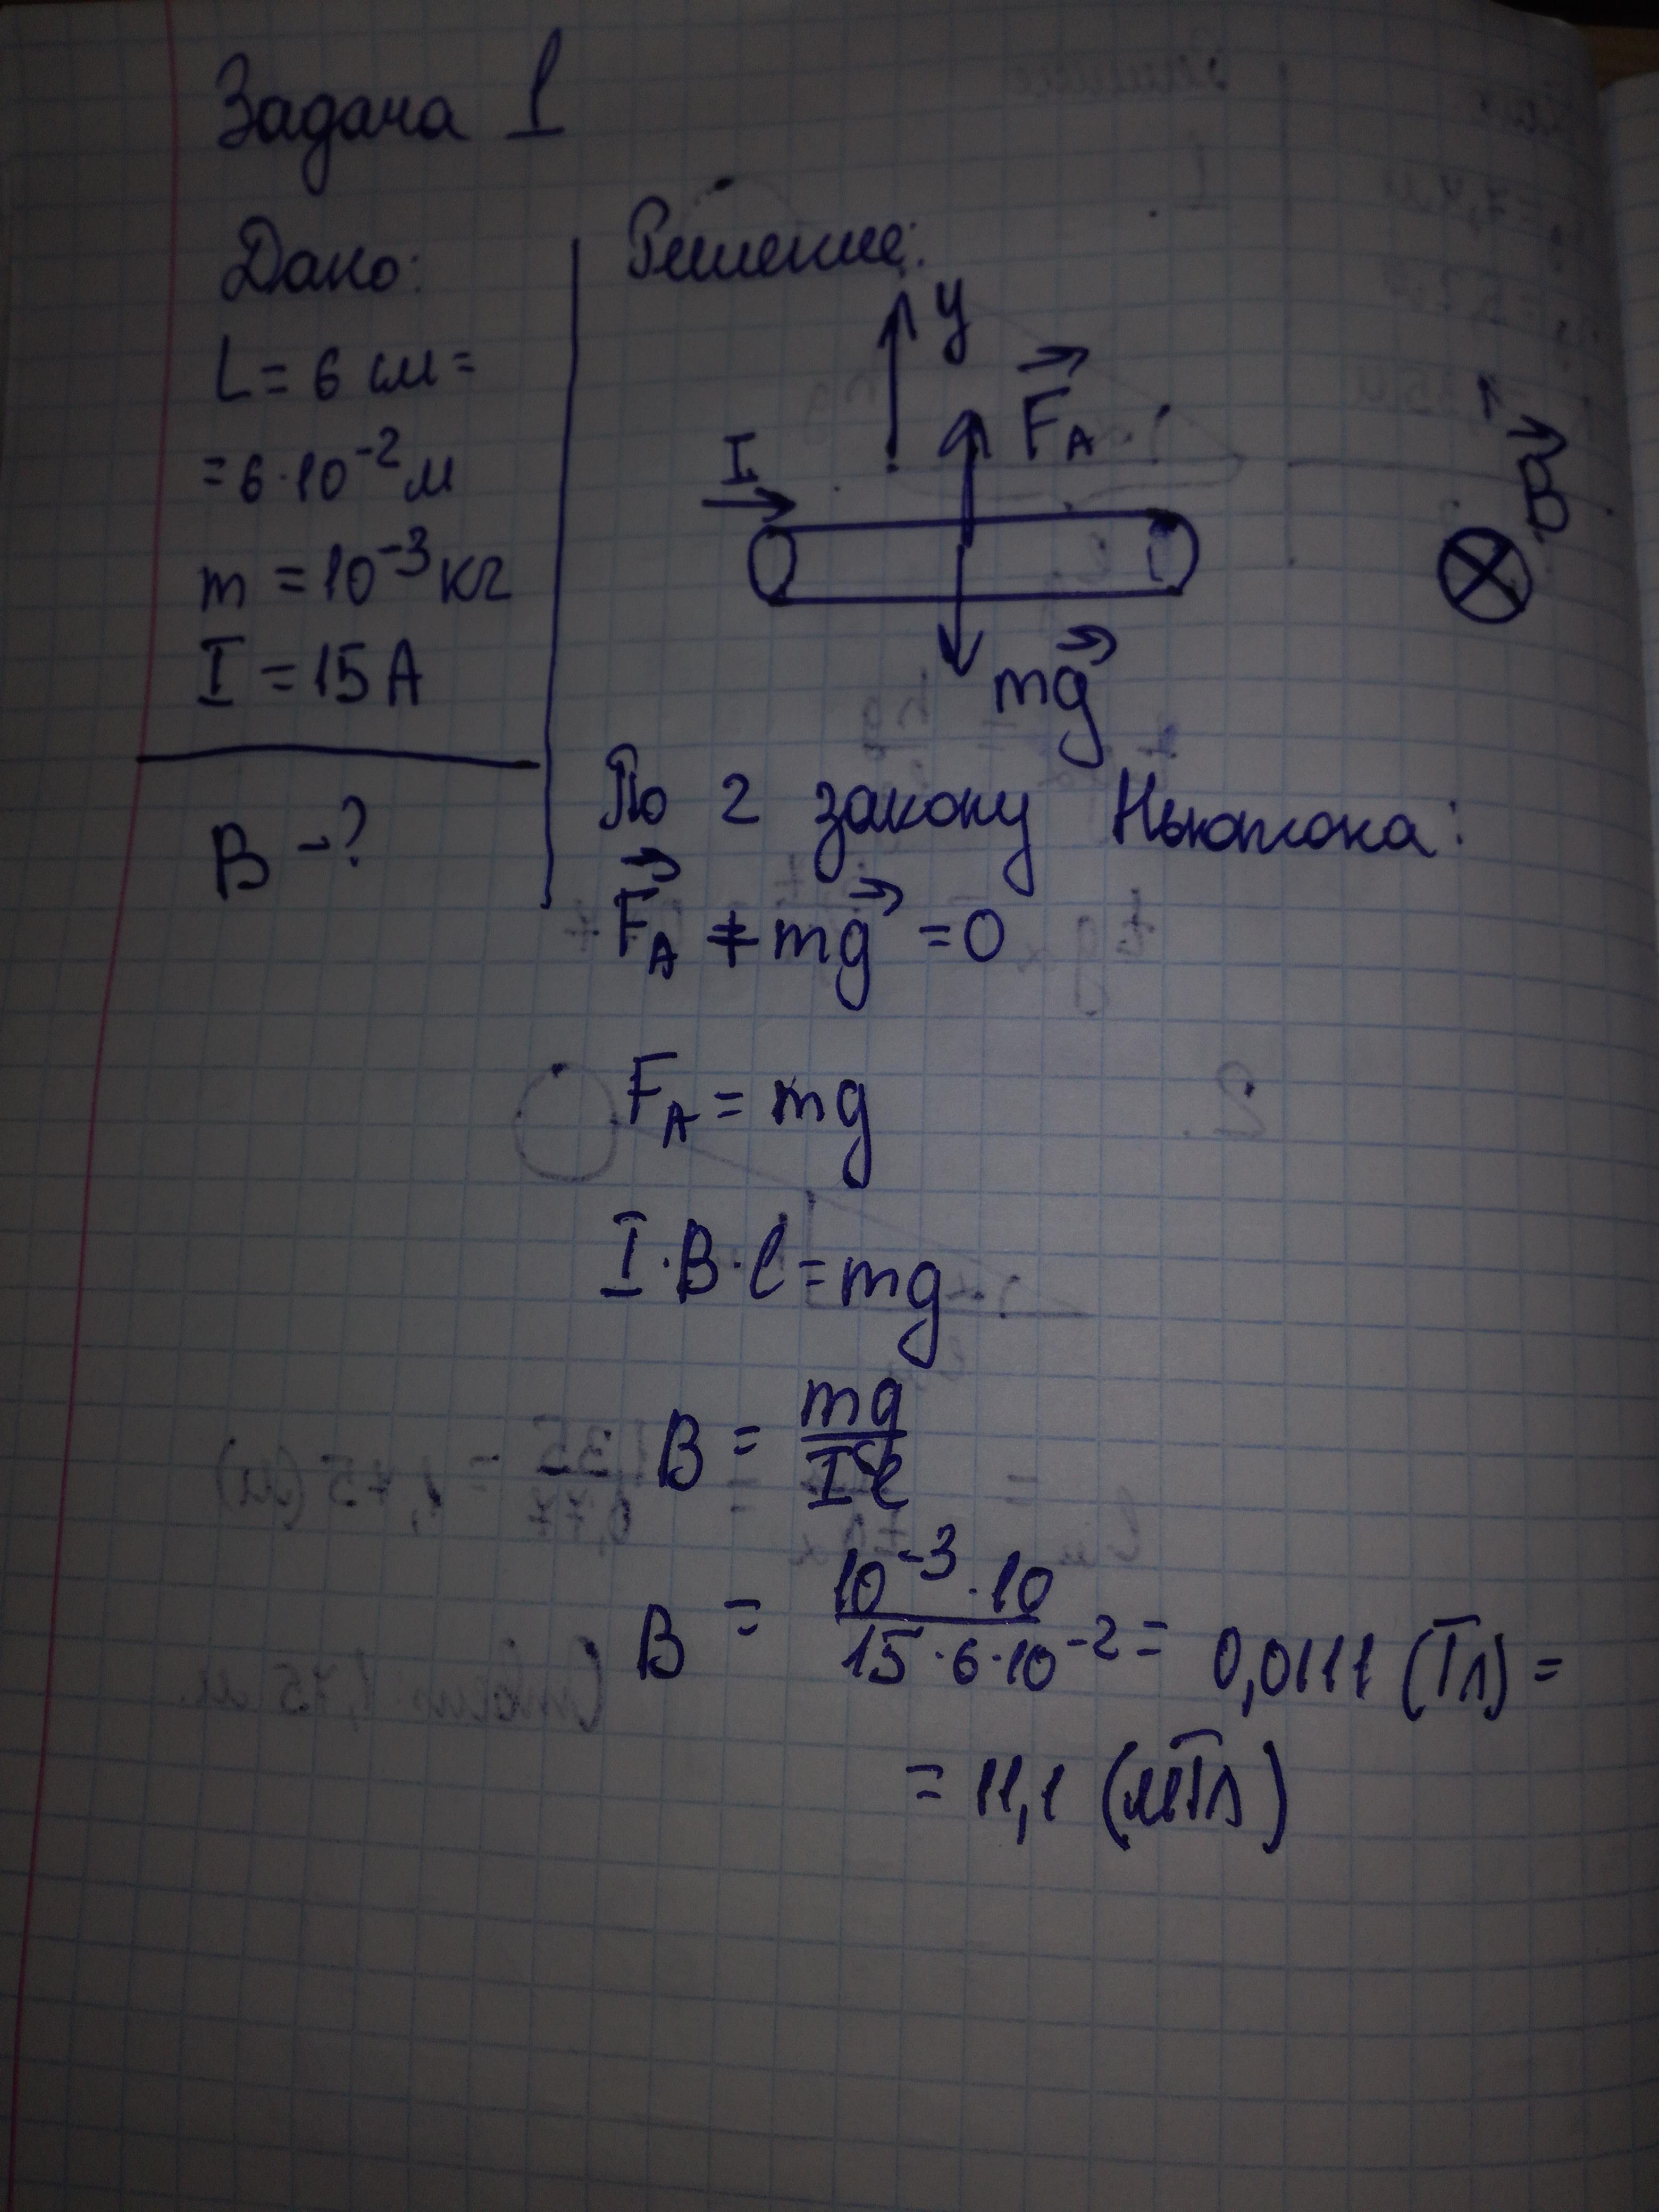 Задача 1
Дано:
L = 6 см =
= 6·10⁻² м
m = 10⁻³ кг
I = 15 А
B - ?
Решение:
y
F⃗_A
I
B⃗
mg⃗
По 2 закону Ньютона:
F⃗_A + mg⃗ = 0
F_A = mg
I·B·l = mg
B = mg / Il
B = 10⁻³·10 / 15·6·10⁻² = 0,0111 (Тл) =
= 11,1 (мТл)